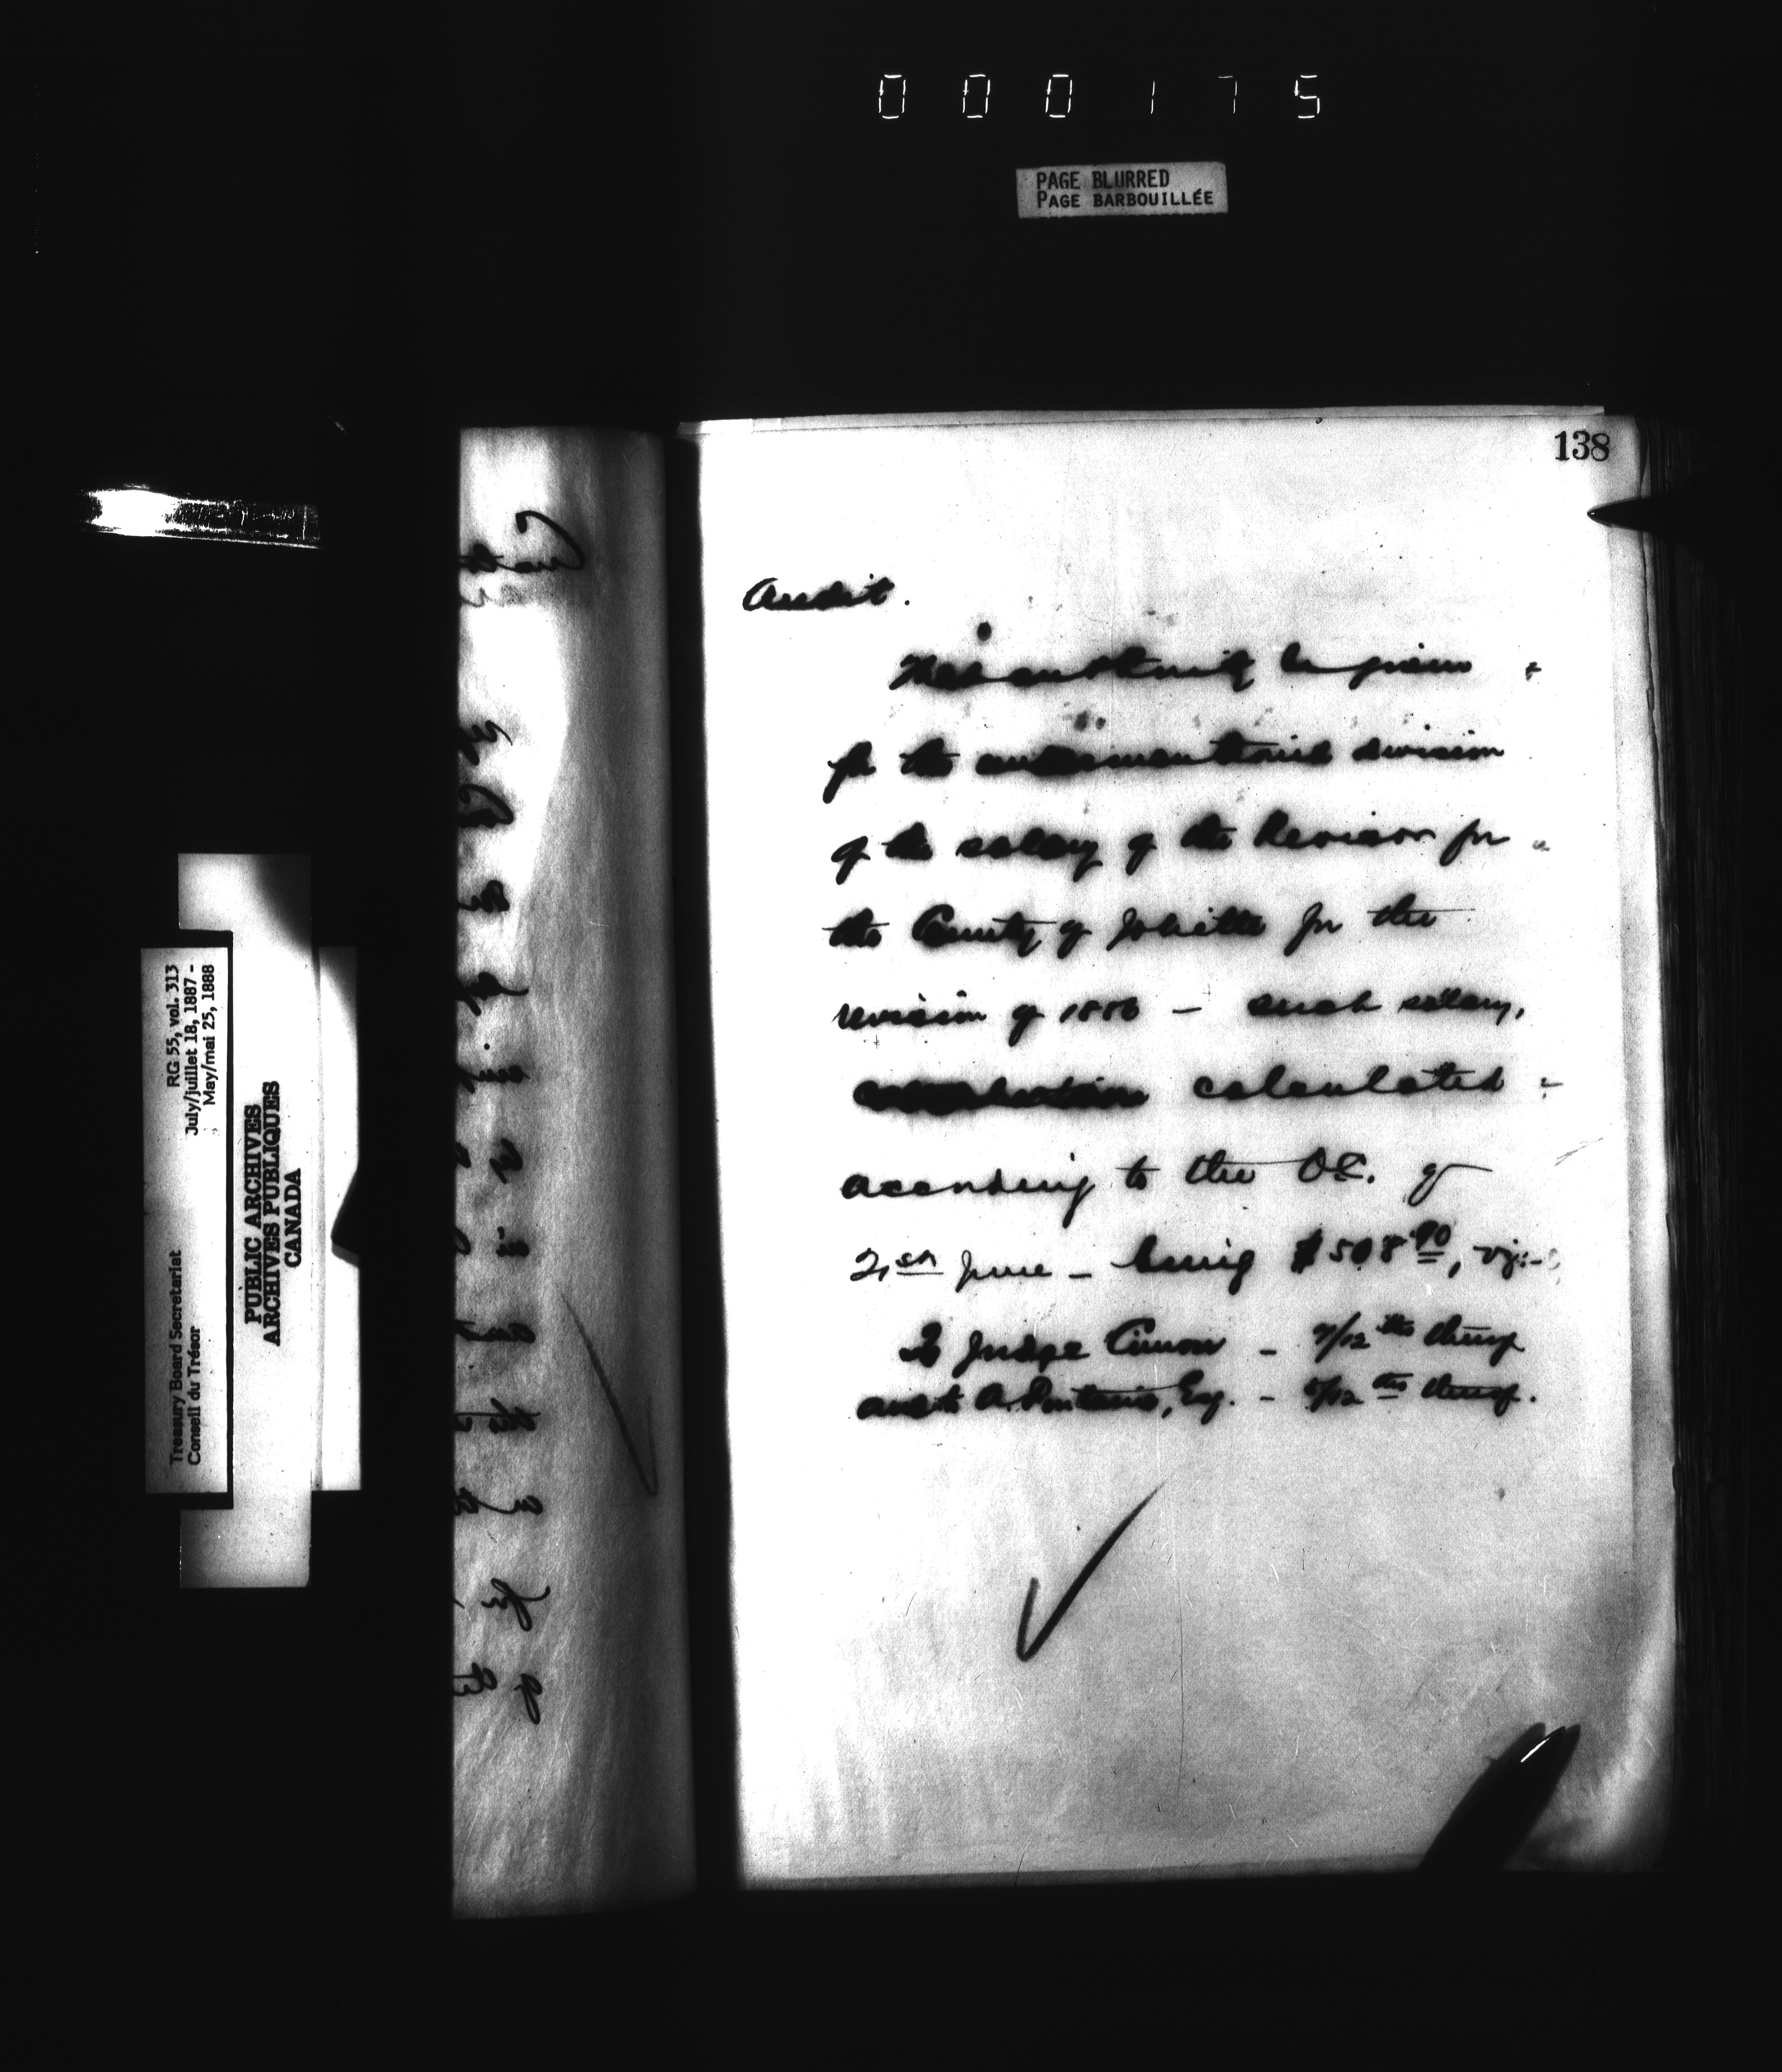 000175
PAGE BLURRED
PAGE BARBOUILLÉE
138
RG 55, vol. 313
July/juillet 18, 1887 -
May/mai 25, 1888
Treasury Board Secretariat
Conseil du Trésor
PUBLIC ARCHIVES
ARCHIVES PUBLIQUES
CANADA
Audit.
That authority be given
for the undermentioned division
of the salary of the Revisor for
the County of Joliette for the
revision of 1886 — such salary,
calculated
according to the O.C. of
21st June — being $508 90, viz:-
To Judge Cimon — 7/12 ths thereof
and to A. Fontaine, Esq. — 5/12 ths thereof.